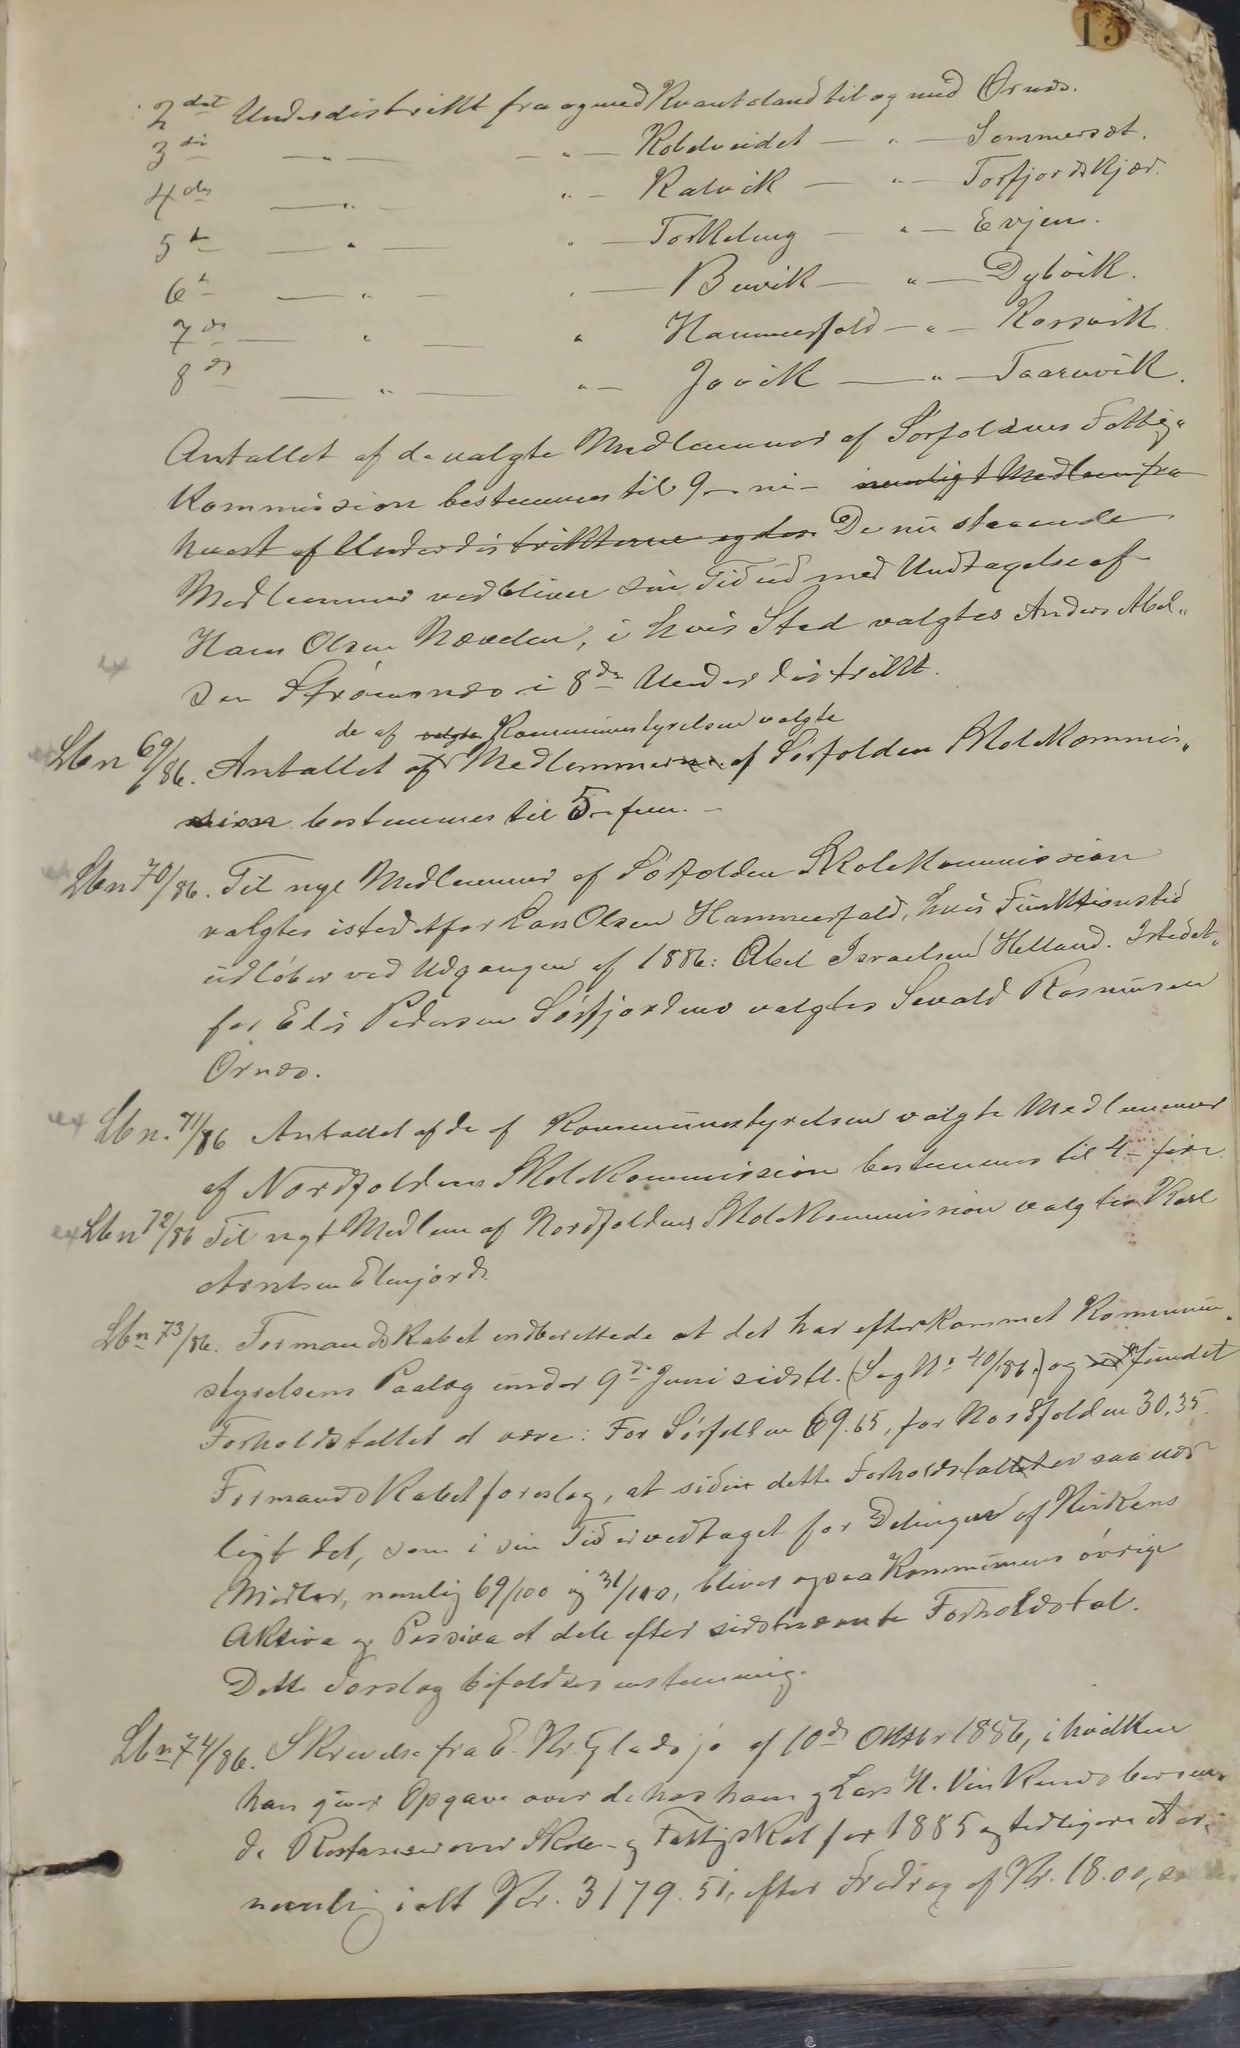 15
2det Underdistrikt fra og med Kvantoland til og med Ørnes.
3die — " — — " — Kobelveidet — " — Sommerset.
4de — " — " — Kalvik — " — Torfjordskjær.
5te — " — " — Torkeleng — " — Evjen.
6te — " — " — Buvik — " — Dybvik.
7de — " — " Hammerfald — " — Korsvik
8de — " — " — Jovik — " — Taarnvik.
Antallet af de valgte Medlemmer af Sørfoldens Fattig-
kommission bestemmes til 9 - ni - nemlig 1 Medlem fra
hvert af Underdistrikterne og des. De nu staaende
Medlemmer vedbliver sin Tid ud med Undtagelse af
Hans Olsen Næveden, i hvis Sted valgtes Anders Abel-
sen Strømsnes i 8de Underdistrikt.
de af valgte Kommunestyrelsen valgte
Lbn 69/86. Antallet af Medlemmerne af Sørfolden Skolekommis-
sion bestemmes til 5 - fem. -
Lbn 70/86. Til nye Medlemmer af Sørfolden Skolekommission
valgtes istedetfor Lars Olsen Hammerfald, hvis Funktionstid
udløber ved Udgangen af 1886: Abel Israelsen Helland. Istedet-
for Elis Pedersen Sørfjordens valgtes Sevald Rasmusen
Ørnes.
ex Lbn. 71/86 Antallet af de af Kommunestyrelsen valgte Medlemmer
af Nordfoldens Skolekommission bestemmes til 4 - fire.
ex Lbn 72/86 Til nyt Medlem af Nordfoldens Skolekommission valgtes Karl
Arntsen Elvfjord.
Lbn 73/86. Formandskabet indberettede at det har efterkommet Kommune-
styrelsens Paalæg under 9de Juni sidstl. (Sag No 40/86.) og fundet
Forholdstallet at være: For Sørfolden 69.65, for Nordfolden 30.35.
Formandskabet foreslog, at siden dette Forholdstallet er saa nær
ligt det, som i sin Tid er vedtaget for Delingen af Kirkens
Midler, nemlig 69/100 og 31/100, bliver ogsaa Kommunens øvrige
Aktiva og Passiva at dele efter sidstnævnte Forholdstal.
Dette Forslag bifaldtes enstemmig.
Lbn 74/86. Skrivelse fra E. Kr. Gladsjø af 10de Oktbr 1886, i hvilken
han giver Opgave over de hos ham og Lars H. Vinkenes beroen-
de Restanser over Skole- og Fattigskat for 1885 og tidligere Aar,
nemlig ialt Kr. 3179.51, efter Fradrag af Kr. 18.00,